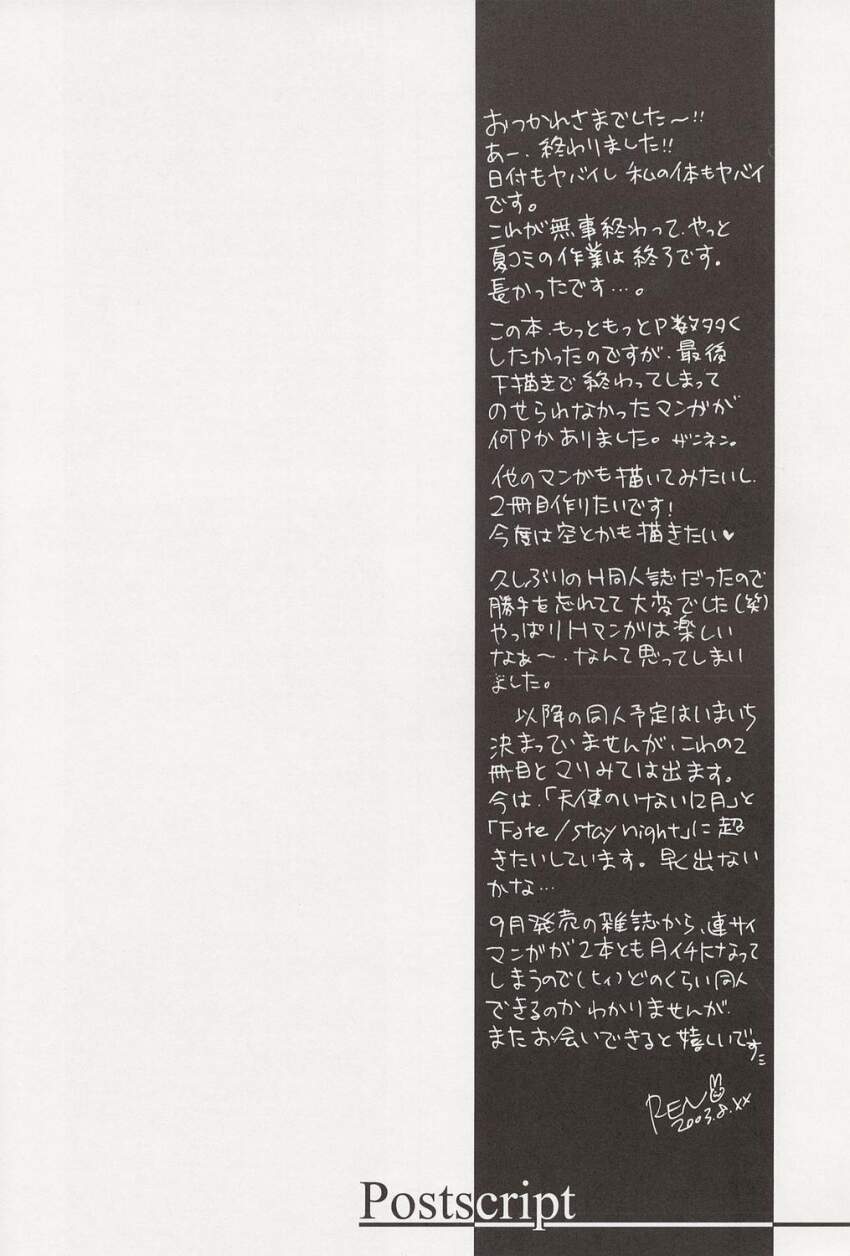 おつかれさまでした〜!!
あー、終わりました!!
日付もヤバイし 私の体もヤバイ
です。
これが無事終わって、やっと
夏コミの作業は終了です。
長かったです…。
この本、もっともっとP数多く
したかったのですが、最後
下描きで終わってしまって
のせられなかったマンガが
何Pかありました。ザンネン。
他のマンガも描いてみたいし、
2冊目作りたいです!
今度は空とかも描きたい♥
久しぶりのH同人誌だったので
勝手を忘れてて大変でした(笑)
やっぱりHマンガは楽しい
なぁ〜、なんて思ってしまい
ました。
以降の同人予定はいまいち
決まっていませんが、これの2
冊目とマリみては出ます。
今は、「天使のいない12月」と
「Fate/stay night」に超
きたいしています。早く出ない
かな…
9月発売の雑誌から、連サイ
マンガが2本とも月イチになって
しまうので(ヒィ)どのくらい同人
できるのかわかりませんが、
またお会いできると嬉しいです
REN
2003.8.xx
Postscript